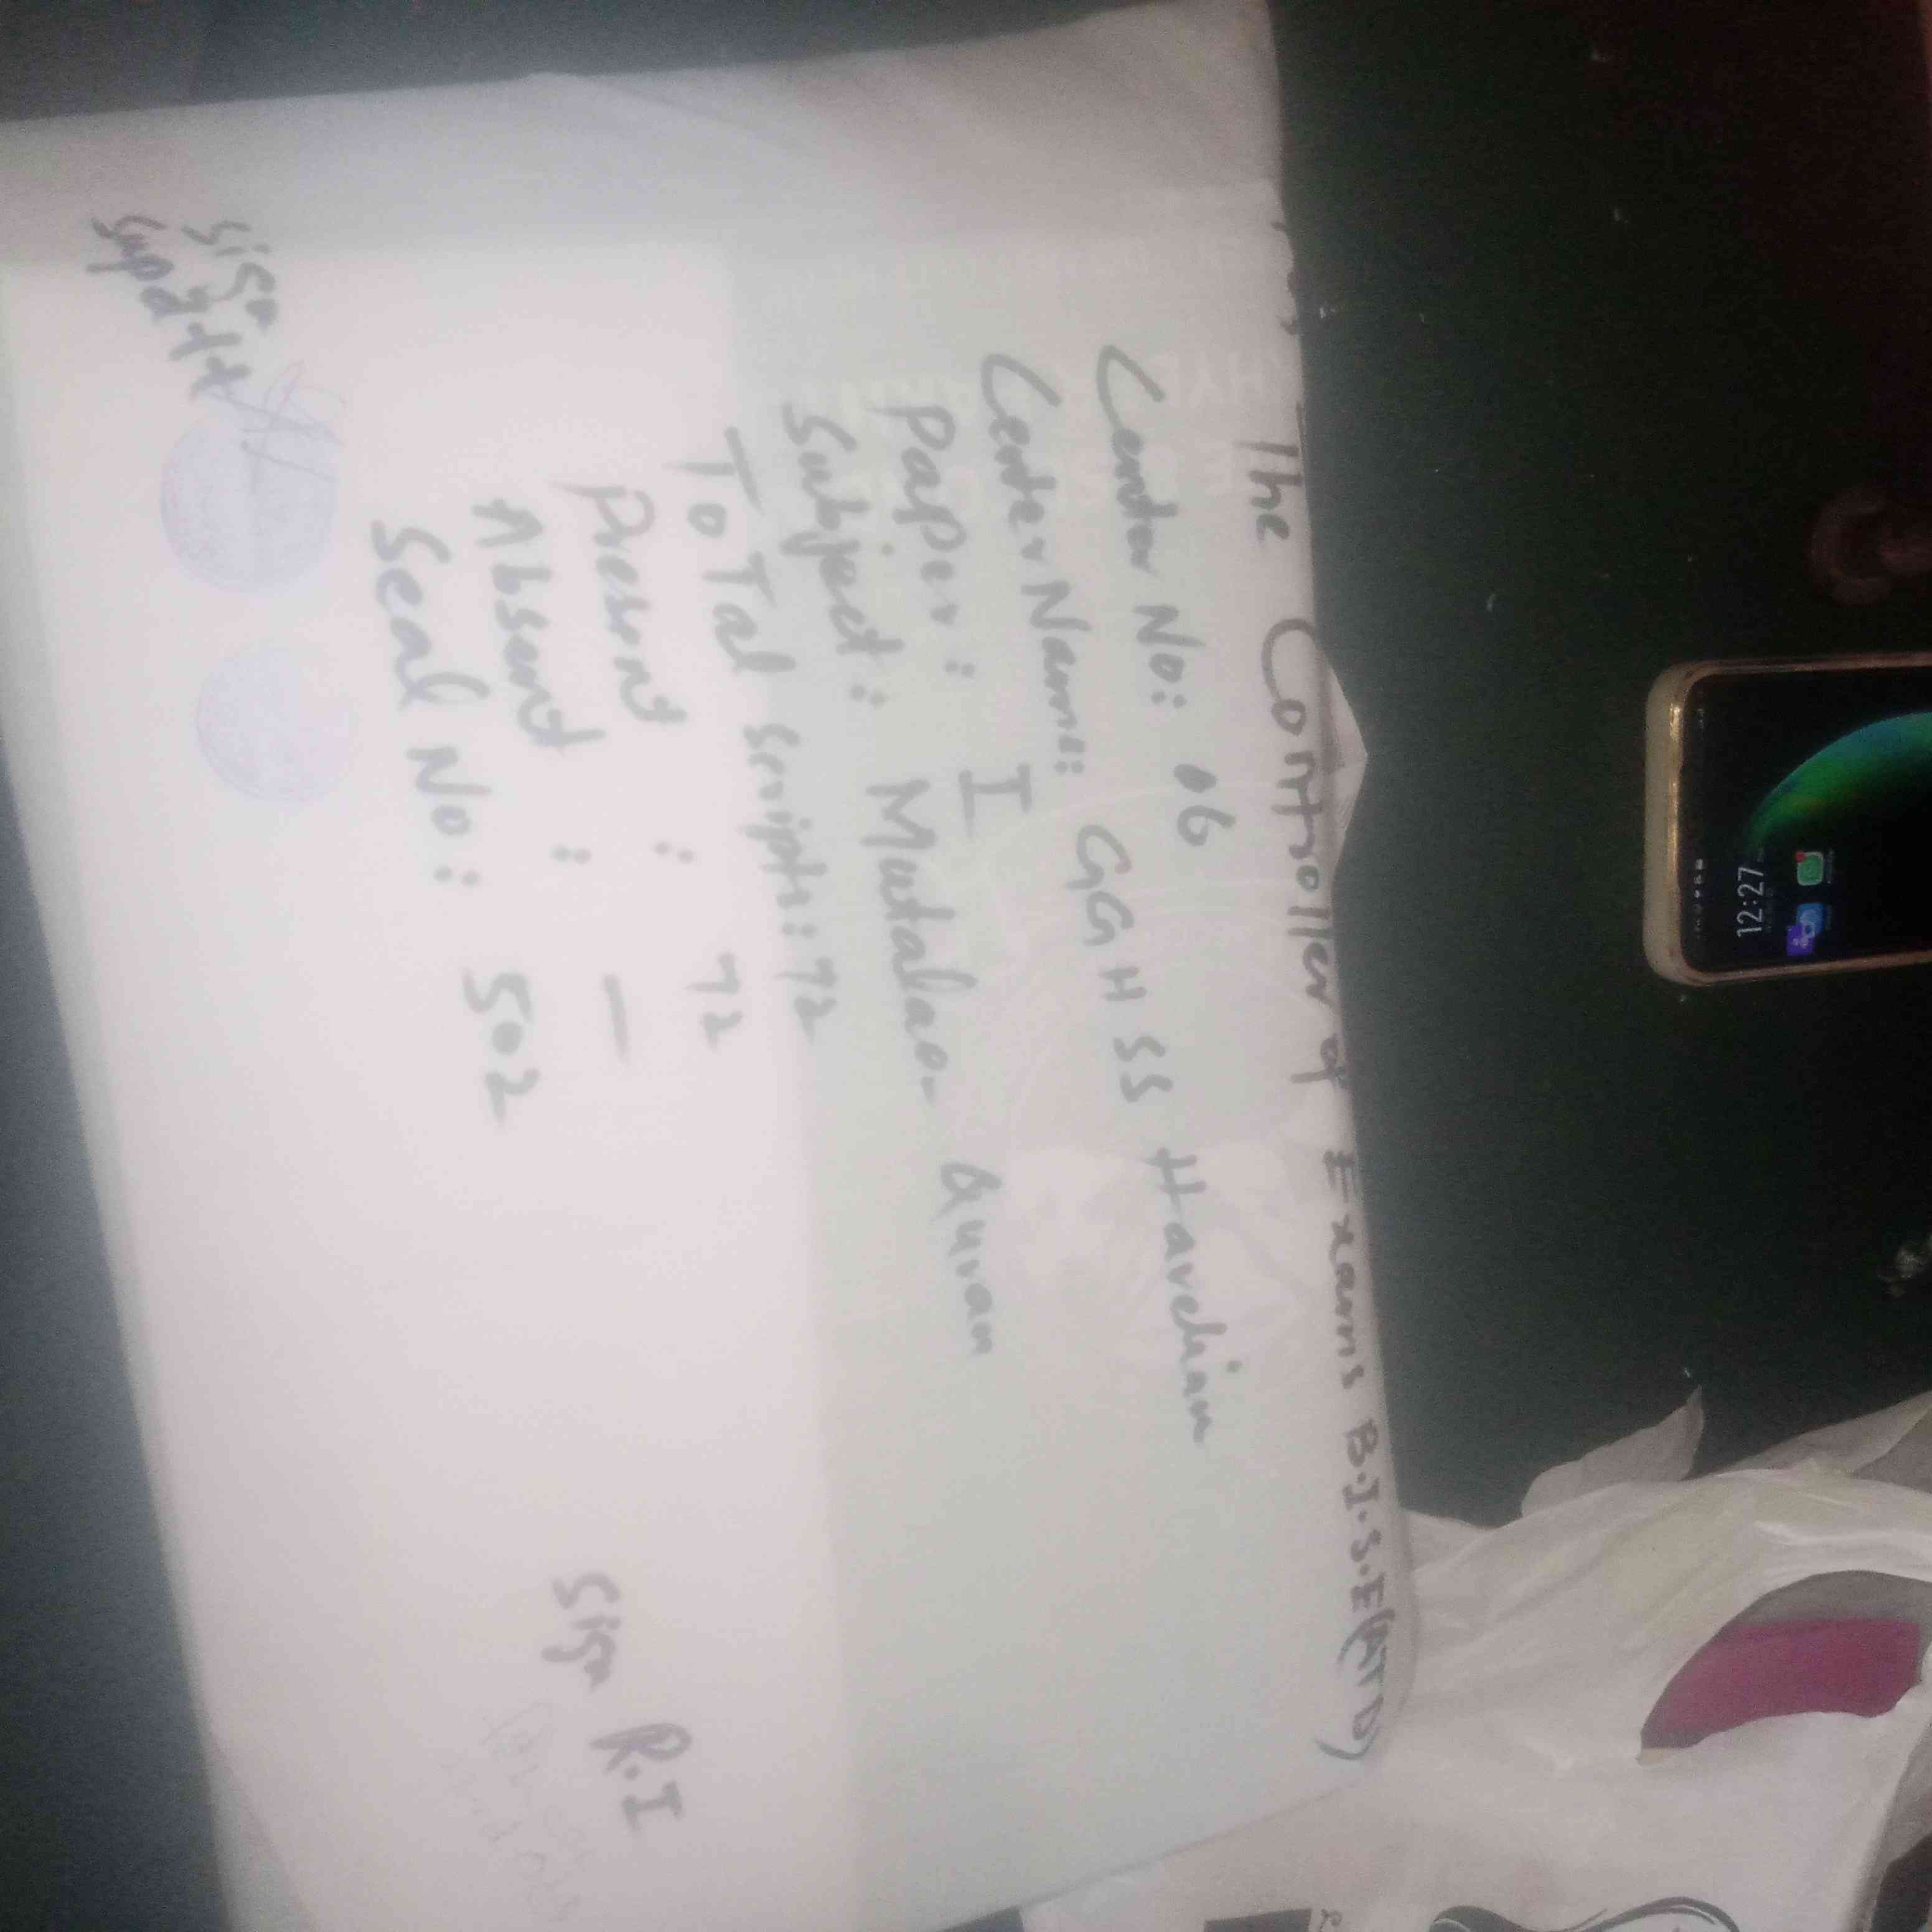 The Controller of Exams B.I.S.E (ATD)
Center No: 06
Center Name: GGHSS Havelian
Paper: I
Subject: Mutalao Quran
ToTal scripts: 72
Present : 72
Absent : —
Seal No: 502
Sign R.I
Sign
Supdtt
12:27